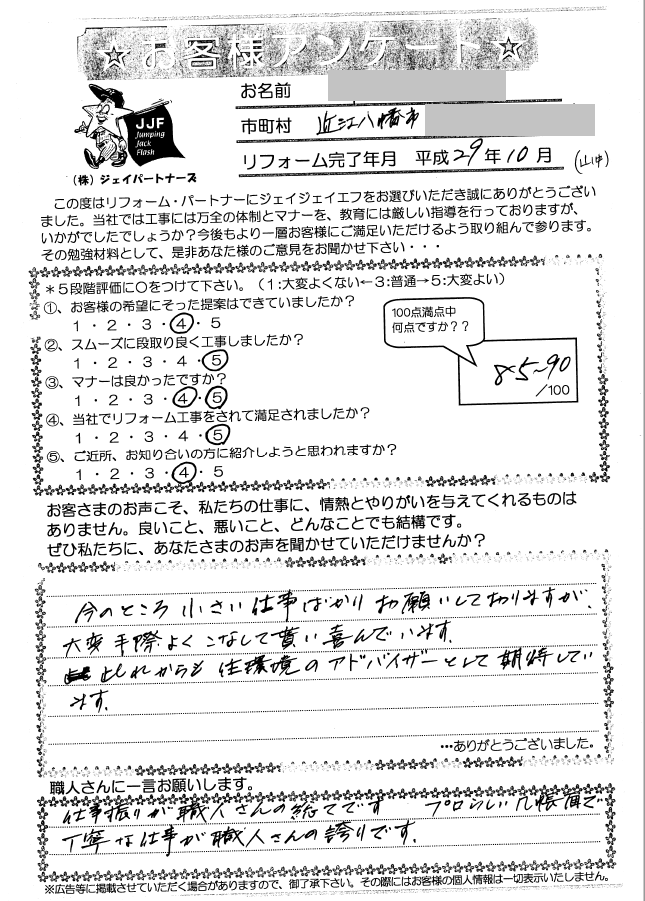 ☆お客様アンケート☆
お名前
市町村 近江八幡市
リフォーム完了年月 平成29年10月 (山中)
JJF
Jumping
Jack
Flash
(株)ジェイパートナーズ
この度はリフォーム・パートナーにジェイジェイエフをお選びいただき誠にありがとうござい
ました。当社では工事には万全の体制とマナーを、教育には厳しい指導を行っておりますが、
いかがでしたでしょうか?今後もより一層お客様にご満足いただけるよう取り組んで参ります。
その勉強材料として、是非あなた様のご意見をお聞かせ下さい・・・
*5段階評価に○をつけて下さい。(1:大変よくない←3:普通→5:大変よい)
①、お客様の希望にそった提案はできていましたか?
1・2・3・④・5
②、スムーズに段取り良く工事しましたか?
1・2・3・4・⑤
③、マナーは良かったですか?
1・2・3・④・⑤
④、当社でリフォーム工事をされて満足されましたか?
1・2・3・4・⑤
⑤、ご近所、お知り合いの方に紹介しようと思われますか?
1・2・3・④・5
100点満点中
何点ですか??
85~90
/100
お客さまのお声こそ、私たちの仕事に、情熱とやりがいを与えてくれるものは
ありません。良いこと、悪いこと、どんなことでも結構です。
ぜひ私たちに、あなたさまのお声を聞かせていただけませんか?
今のところ小さい仕事ばかりお願いして切りますが、
大変手際よくこなして貰い喜んでいます。
これからも住環境のアドバイザーとして期待してい
ます。
…ありがとうございました。
職人さんに一言お願いします。
仕事振りが職人さんの総てです プロらしい几帳面で
丁寧な仕事が職人さんの誇りです。
※広告等に掲載させていただく場合がありますので、御了承下さい。その際にはお客様の個人情報は一切表示いたしません。